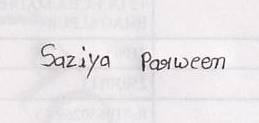 Saziya Parween